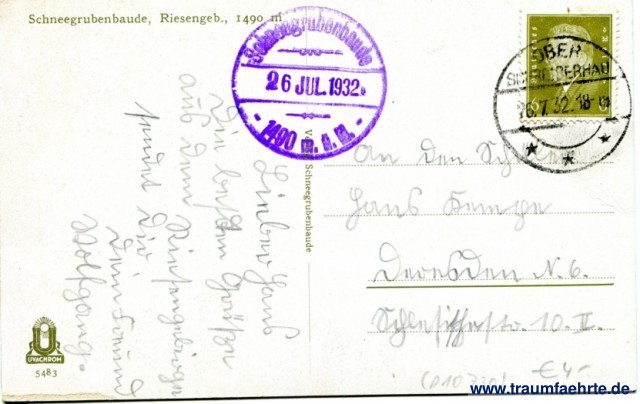 Schneegrubenbaude, Riesengeb., 1490 m
Schneegrubenbaude
26 JUL. 1932
- 1490 m.ü.M. -
OBER
SCHREIBERHAU
26.7.32.18-
Lieber Hans
Die besten Grüße
aus dem Riesengebirge
sendet Dir
Dein Freund
Wolfgang.
Schneegrubenbaude
An den Schüler
Hans Kempe
Dresden N. 6.
Schlesischestr. 10. II.
UVACHROM
5483
€4,-
www.traumfaehrte.de